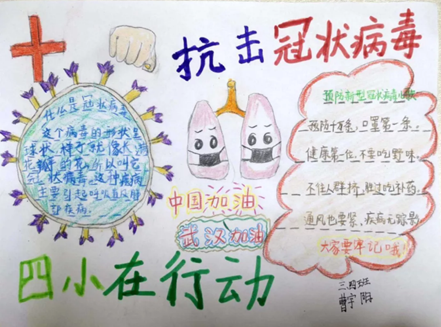 抗击冠状病毒
什么是冠状病毒
这个病毒的形状是
球状,样子就像长满
花瓣的花,所以叫它
冠状病毒。这种疾病
主要引起呼吸道及肺
部疾病。
中国加油
武汉加油
预防新型冠状病毒
预防千万条,口罩第一条。
健康第一位,不要吃野味。
不往人群挤,
通风也要紧,疾病无踪影
大家要牢记哦!
四小在行动
三四班
曹宇